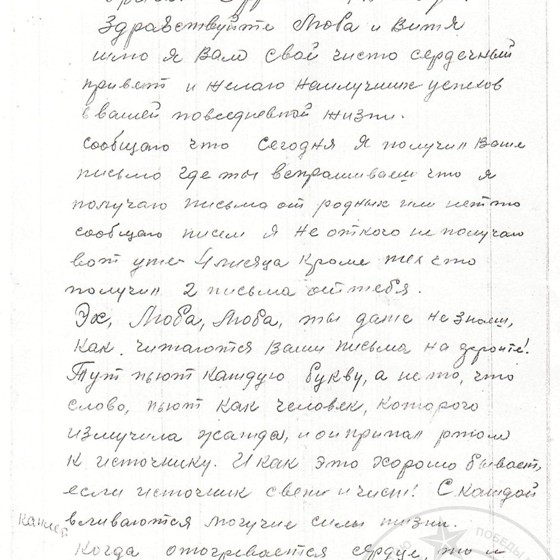 Здравствуйте Люба и Витя
шлю я Вам свой чисто сердечный
привет и желаю наилучших успехов
в вашей повседневной жизни.
Сообщаю что сегодня я получил Ваше
письмо где ты вспрашиваеш что я
получаю письма от родных или нет то
сообщаю писем я не откого не получаю
вот уже 4 месяца кроме тех что
получил 2 письма от тебя.
Эх, Люба, Люба, ты даже не знаеш,
как читаются Ваши письма на фронте!
Тут пьют каждую букву, а не то, что
слово, пьют как человек, которого
измучила жажда, и он припал ртом
к источнику. И как это хорошо бывает,
если источник свеж и чист! С каждой
каплей вливаются могучие силы жизни.
Когда отогревается сердце, то и
ПОБЕДЫ